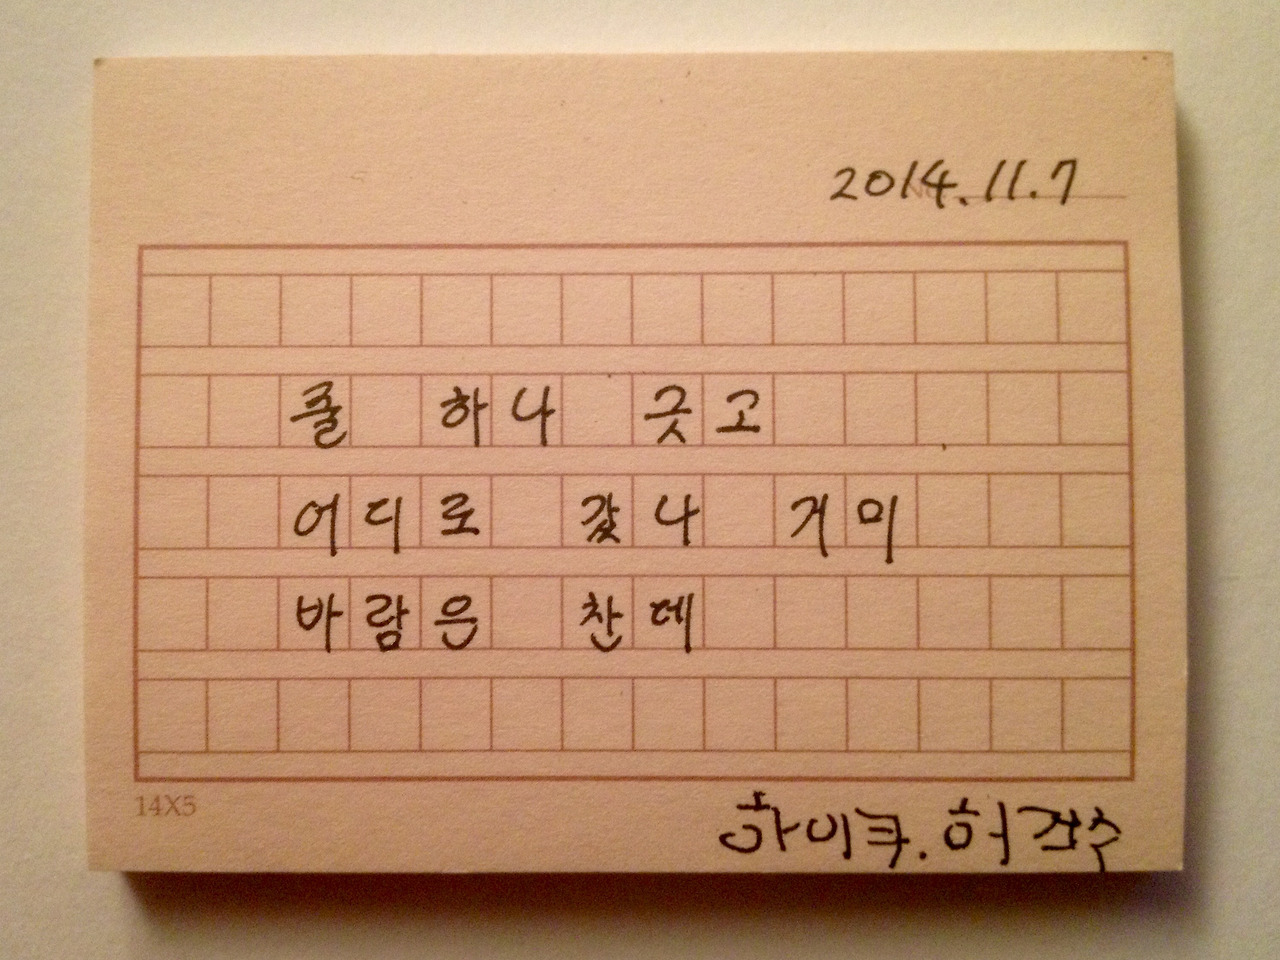 2014.11.7
줄 하나 긋고
어디로 갔나 거미
바람은 찬데
14X5
하이쿠. 허건수